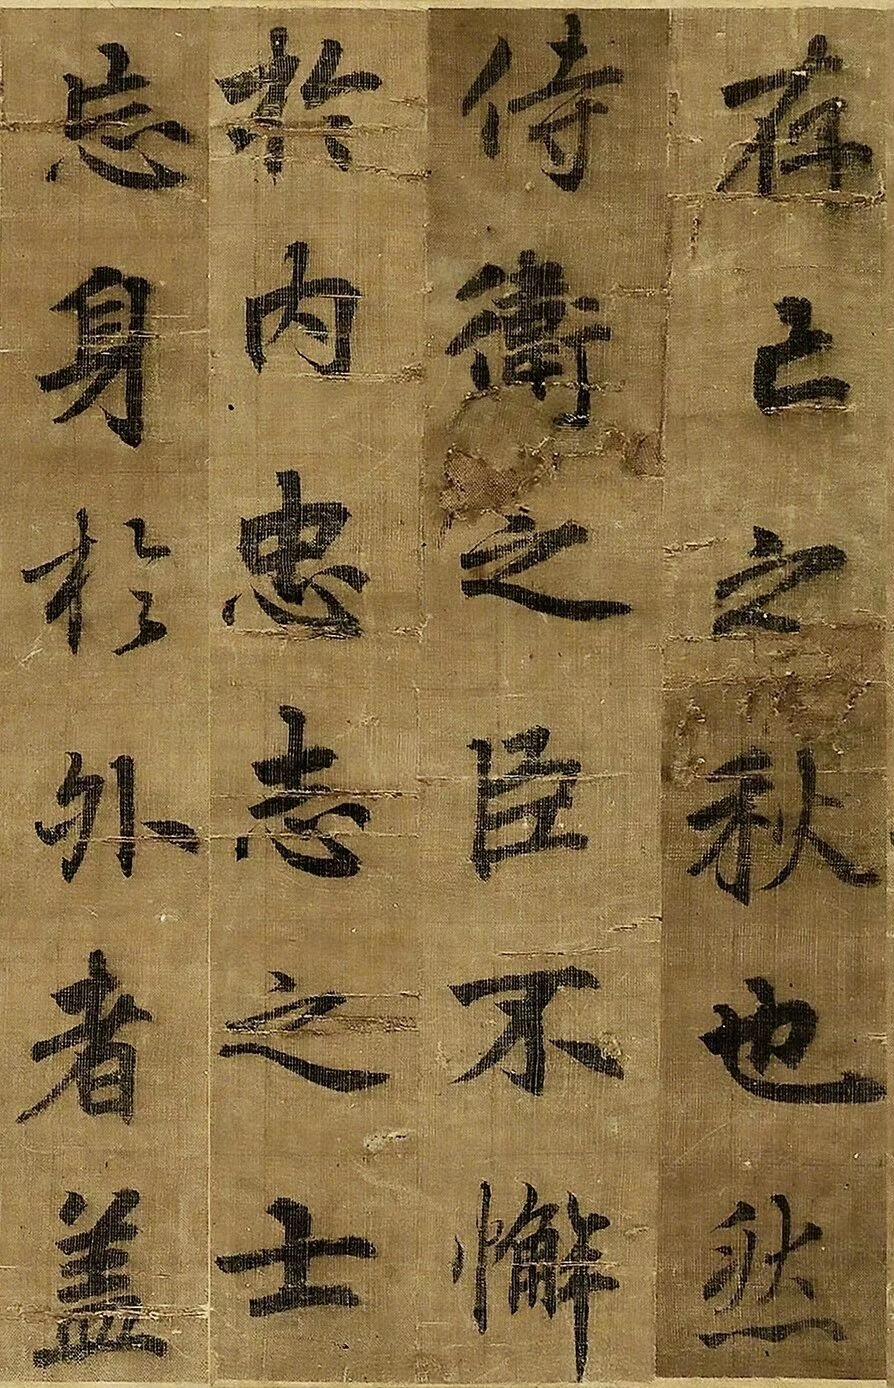 存亡之秋也然
侍衛之臣不懈
於內忠志之士
忘身於外者盖